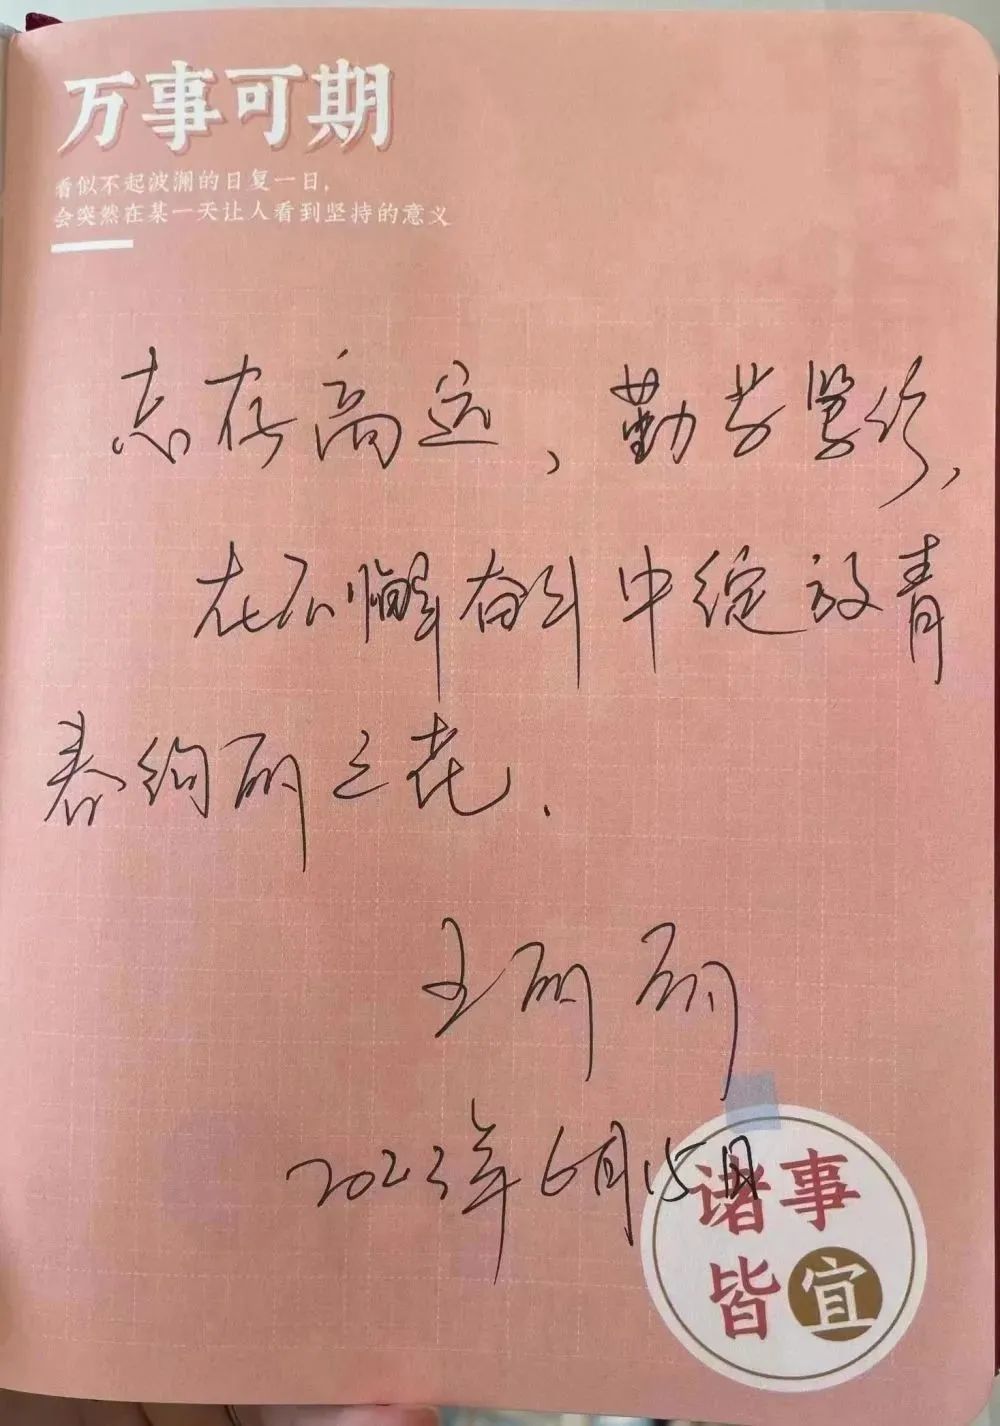 万事可期
看似不起波澜的日复一日，
会突然在某一天让人看到坚持的意义
志存高远、勤学笃行，
在不懈奋斗中绽放青
春绚丽之花.
王丽丽
2023年6月15日
诸事
皆宜